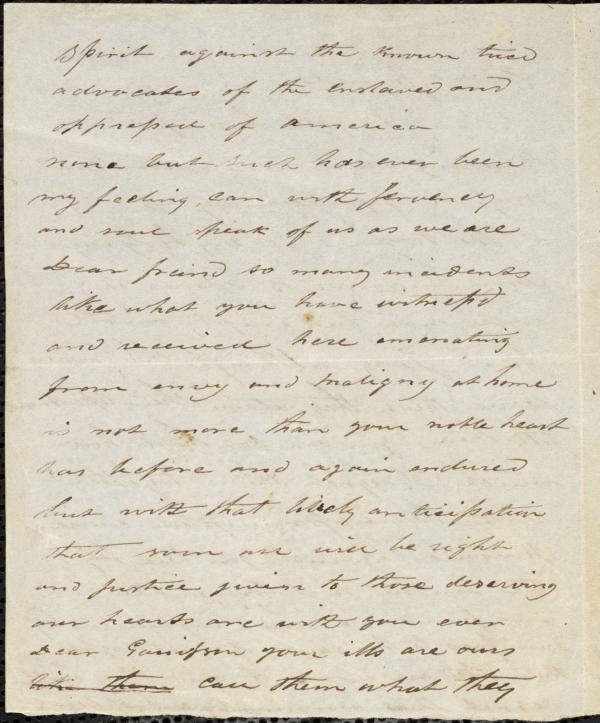 Spirit against the known tried
advocates of the enslaved and
oppressed of america
none but such has ever been
my feeling, can with fervency
and soul speak of us as we are
Dear freind so many incidents
like what you have witness'd
and received here emanating
from envy and maligny at home
is not more than your noble heart
has before and again endured
but with that lively anticipation
that soon all will be right
and justice given to those deserving
our hearts are with you ever
Dear Garrison your ills are ours
them call them what they